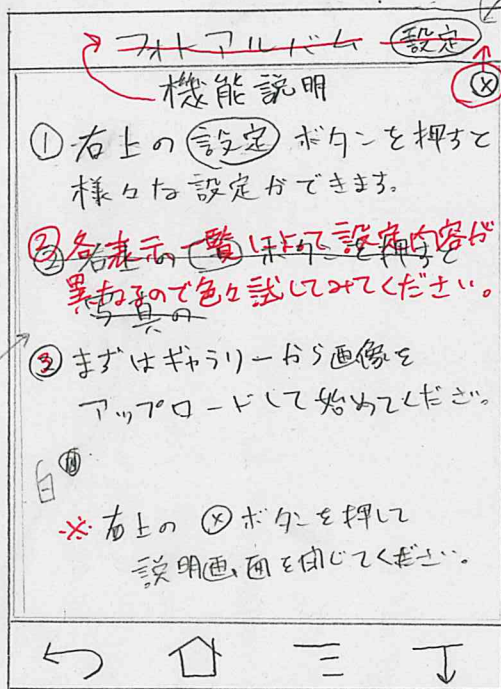 フォトアルバム 設定
機能説明 ×
① 右上の 設定 ボタンを押すと
様々な設定ができます。
② 各表示の一覧によって設定内容が
異なるので色々試してみてください。
写真の
③ まずはギャラリーから画像を
アップロードして始めてくださ。
白
※ 右上の ⓧ ボタンを押して
説明画面を閉じてください。